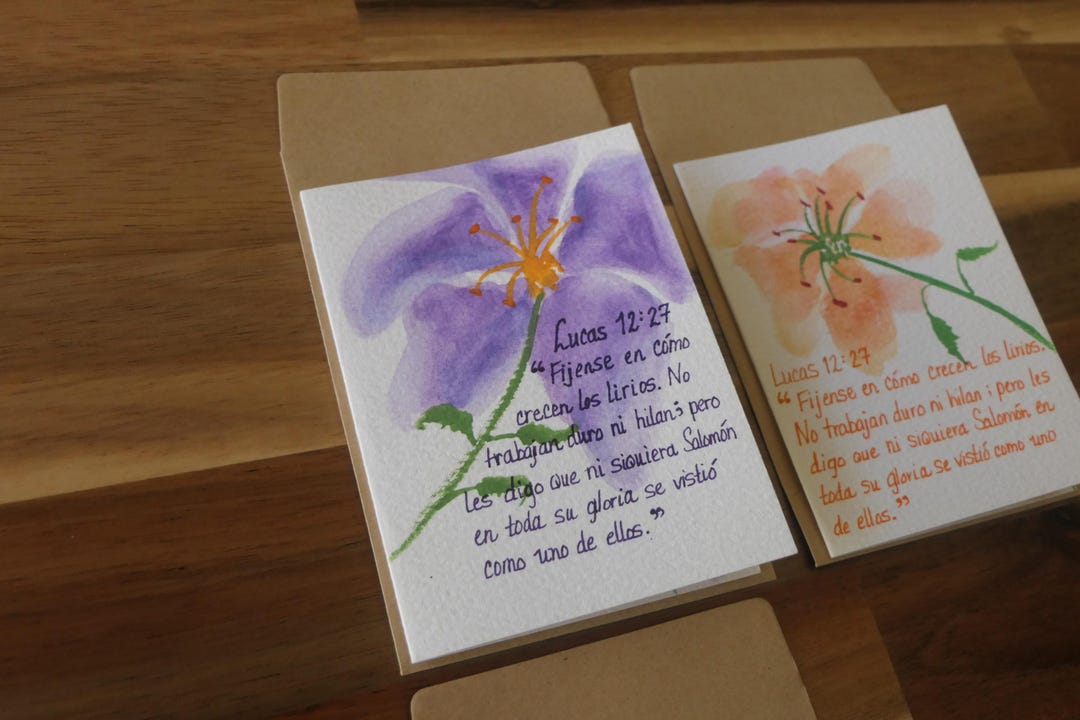 Lucas 12:27
“Fijense en cómo
crecen los lirios. No
trabajan duro ni hilan; pero
les digo que ni siquiera Salomón
en toda su gloria se vistió
como uno de ellos.”
Lucas 12:27
“Fijense en cómo crecen los lirios.
No trabajan duro ni hilan; pero les
digo que ni siquiera Salomón en
toda su gloria se vistió como uno
de ellos.”